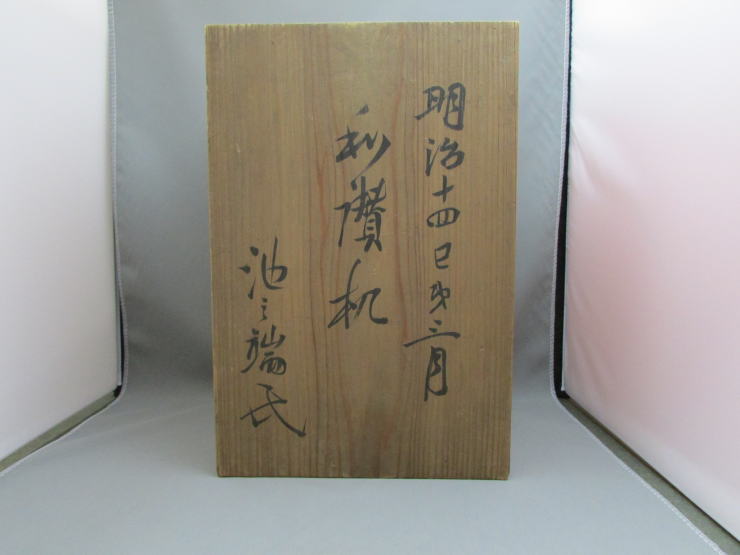 明治十四巳年三月
和讃机
池之端氏